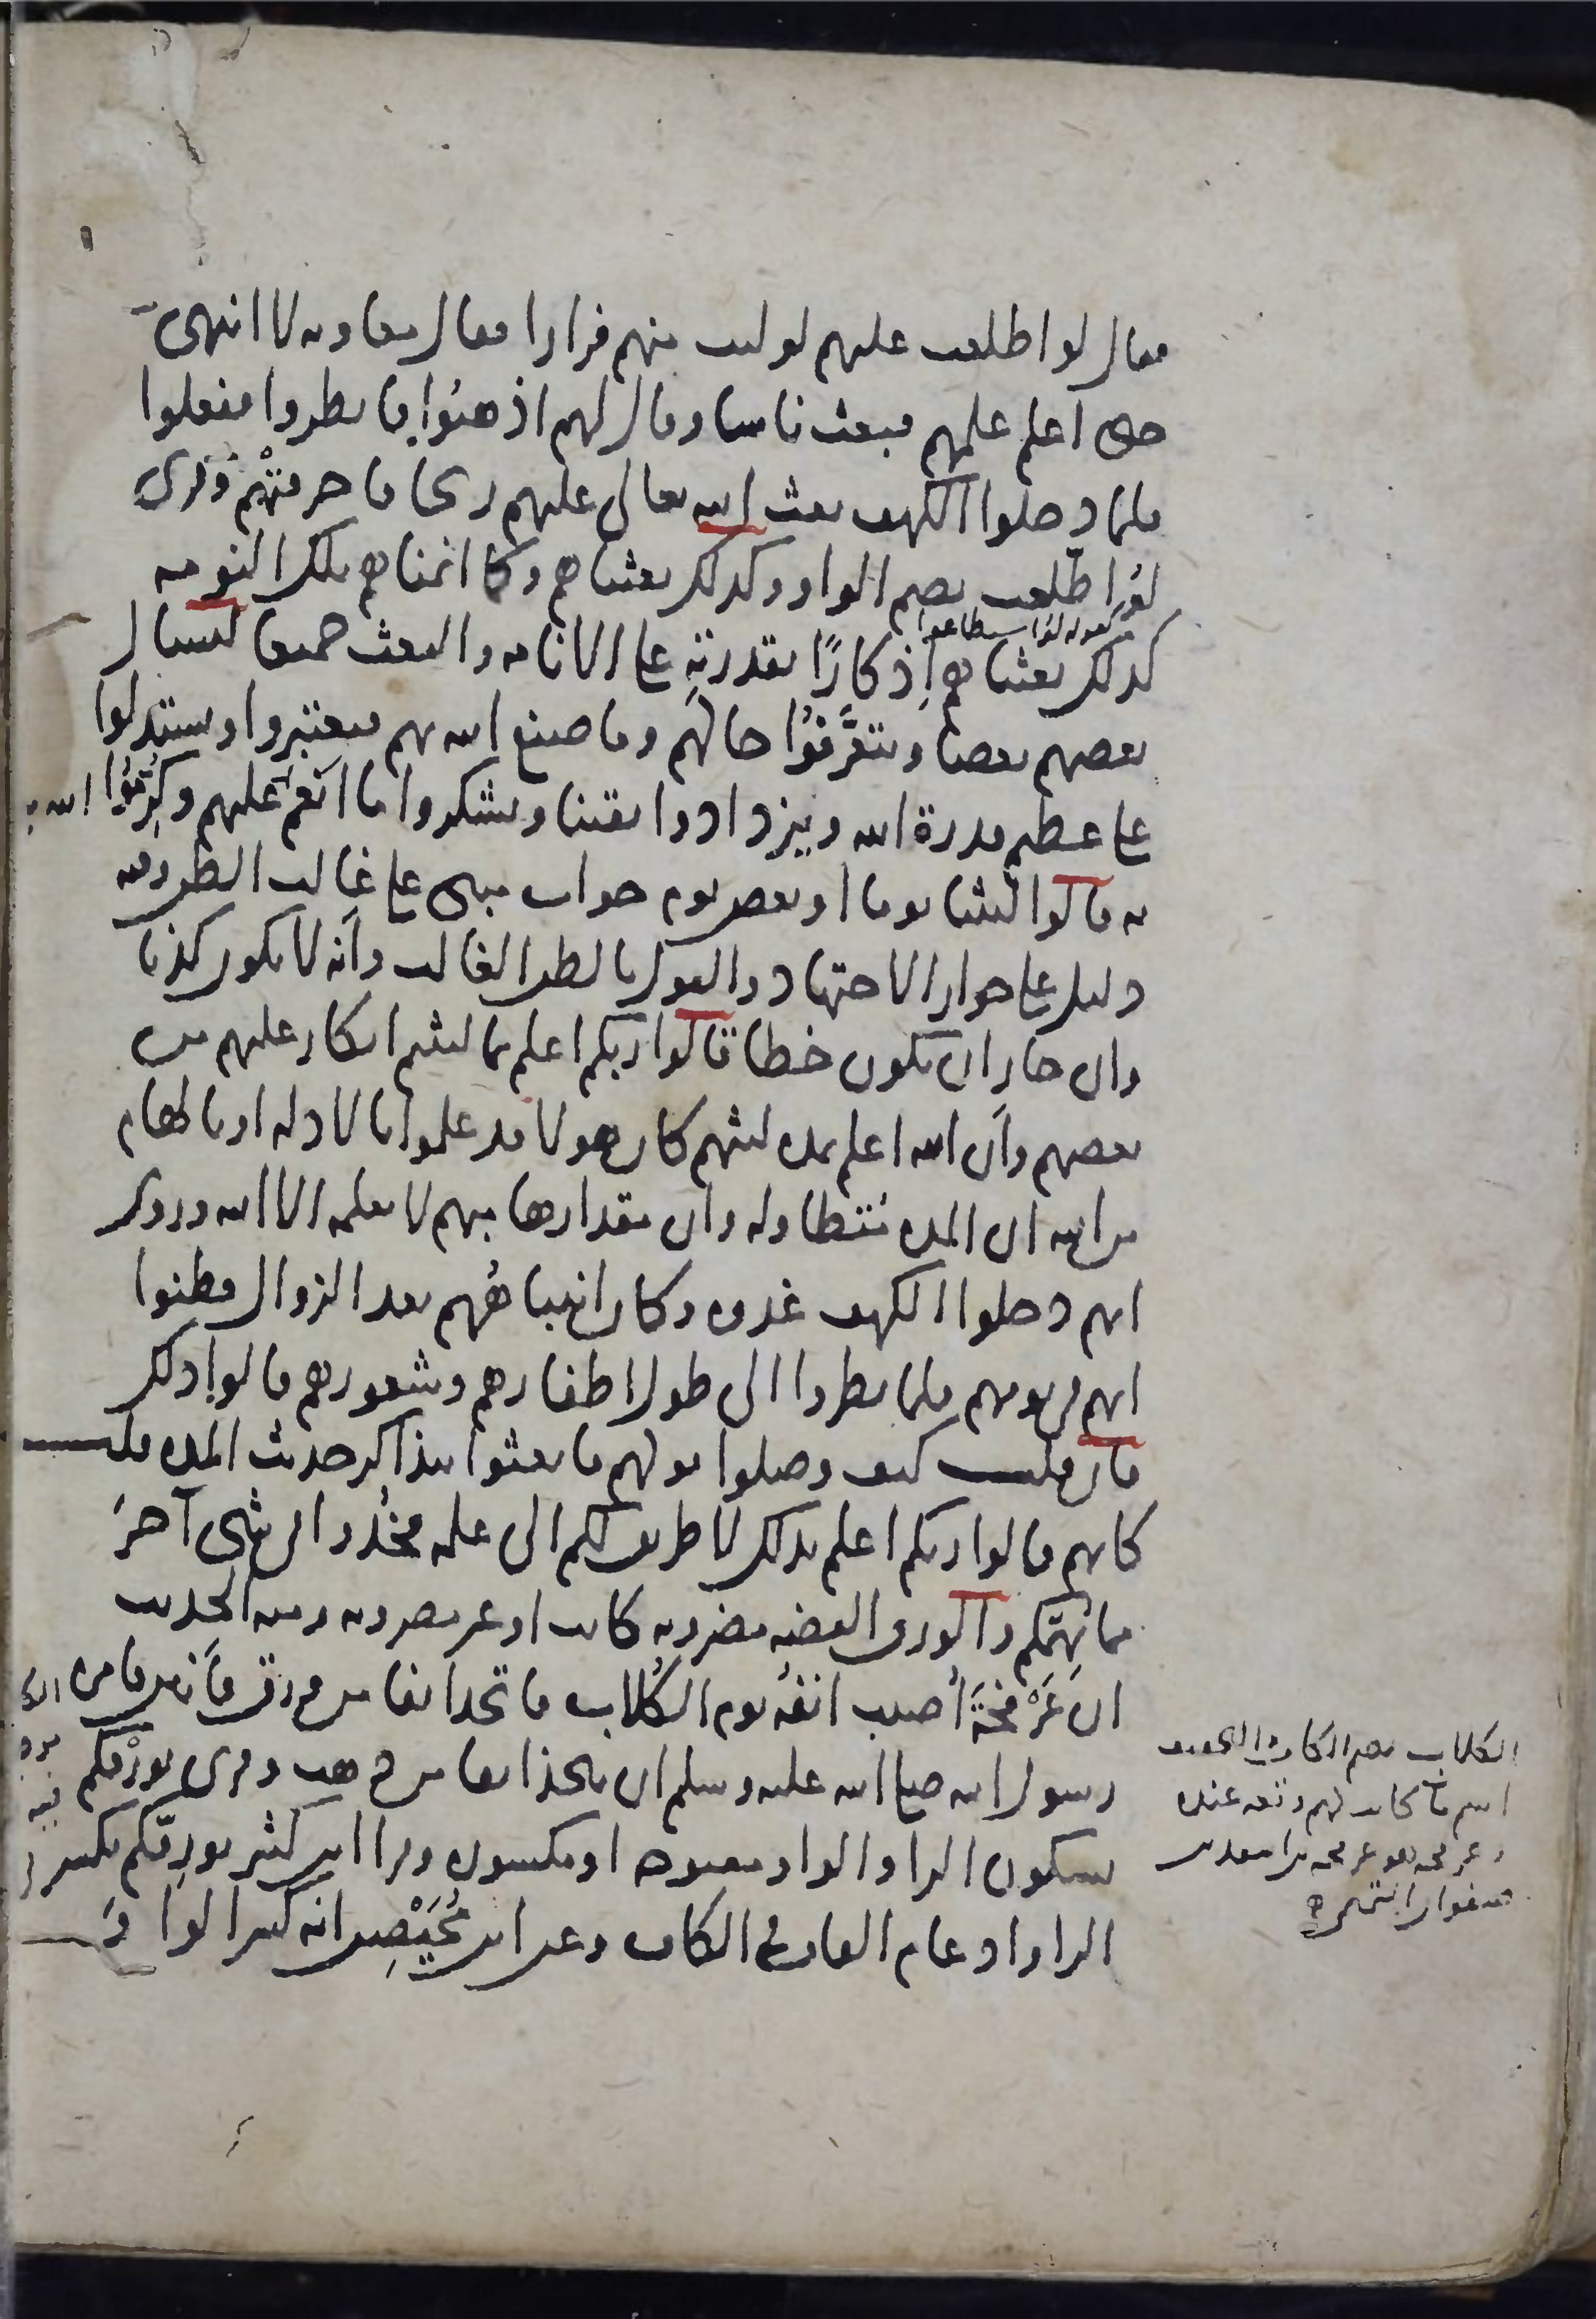 فقال لو اطلعت عليهم لوليت منهم فرارا فقال معاويه لا انتهى
حتى اعلم علمهم فبعث ناسا وقال لهم اذهبوا فانظروا ففعلوا
فلما دخلوا الكهف بعث الله تعالى عليهم ريحا فاحرقتهم وقرى
لوُ اطّلعت بضم الواو وكذلك بعثناهم وكما انمناهم تلك النومه
كذلك بعثناهم إذكارًا بقدرتهِ على الانامه والبعث جميعا ليسال
بعضهم بعضا ويتعرَّفُوا حالهم وما صنع الله بهم فيعتبروا ويستدلوا
على عظم قدرة الله ويزدادوا يقينا ويشكروا ما انعم الله به عليهم وكُرِّمُوا
به قالوا لبثنا يوما او بعض يوم جواب مبنى على غالب الظن وفيه
دليل على جواز الاجتهاد والقول بالظن الغالب وأنه لا يكون كذبا
وان جاز ان يكون خطا قالوا ربكم اعلم بما لبثتم انكار عليهم من
بعضهم وأن الله اعلم بمده لبثهم كان هولا قد علموا بالادله او بالهام
من الله ان المده متطاوله وان مقدارها مبهم لا يعلمه الا الله وروى
انهم دخلوا الكهف غدوه وكان انتباهُهم بعد الزوال فظنوا
انهم فى يومهم فلما نظروا الى طول اظفارهم وشعورهم قالوا ذلك
فان قلت كيف وصلوا قولهم فابعثوا بتذاكر حديث المده قلت
كانهم قالوا ربكم اعلم بذلك لا طريق لكم الى علمه فخُذوا فى شى آخرَ
مما يهمكم والورق الفضه مضروبه كانت او غير مضروبه ومنه الحديث
ان عَرْفجَةَ أصيب انفُه يوم الكُلاب فاتخذ انفا من ورق فأنتن فامره
رسول الله صلى الله عليه وسلم ان يتخذ انفا من ذهب وقرى بورْقكم
بسكون الراء والواو مفتوحه او مكسوره وقرا ابن كثير بورِقّكم بكسر
الراء وادغام القاف فى الكاف وعن ابن مُحَيْصِن انه كسر الواو
كقوله لوُ استطاعوا
الكلاب بضم الكاف والتخفيف
اسم ماء كانت لهم وقعه عنده
وعرفجه هو عرفجه بن اسعد بن
صفوان انتهى